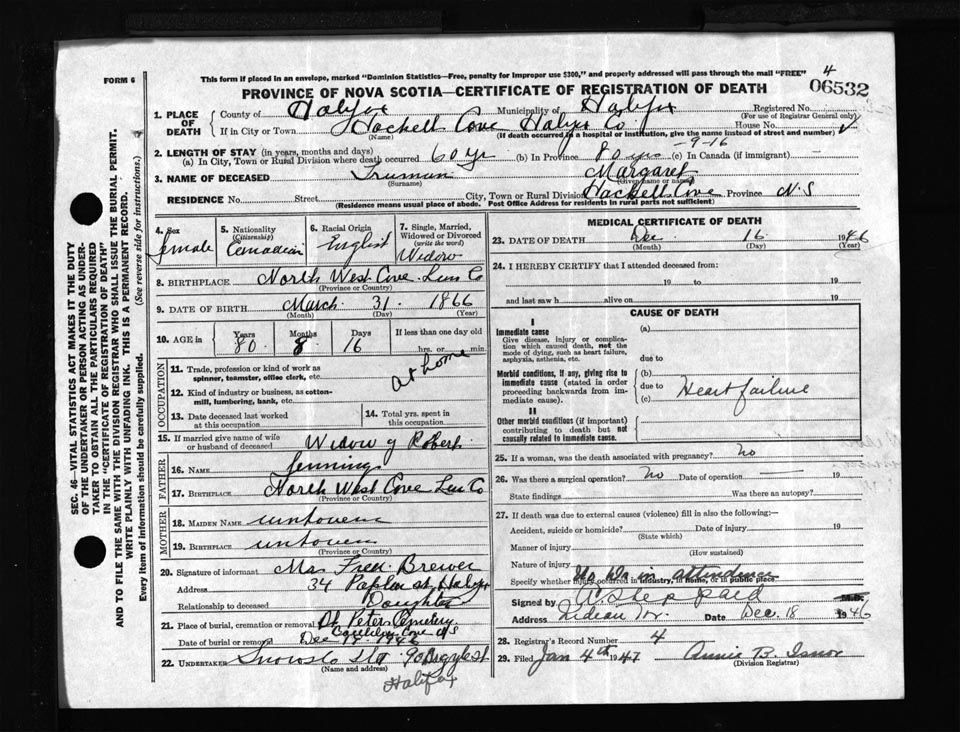 FORM 6
This form if placed in an envelope, marked "Dominion Statistics—Free, penalty for improper use $300," and properly addressed will pass through the mail "FREE"
4
06532
PROVINCE OF NOVA SCOTIA—CERTIFICATE OF REGISTRATION OF DEATH
1. PLACE OF DEATH
County of Halifax Municipality of Halifax Registered No.
(For use of Registrar General only)
If in City or Town Hackell Cove Halifax Co House No.
(Name) (If death occurred in a hospital or institution, give the name instead of street and number)
2. LENGTH OF STAY (in years, months and days) -9-16
(a) In City, Town or Rural Division where death occurred 60 yr (b) In Province 80 yrs (c) In Canada (if immigrant) —
3. NAME OF DECEASED Truman Margaret
(Surname) (Given name or names)
RESIDENCE No. Street City, Town or Rural Division Hackells Cove Province N.S
(Residence means usual place of abode. Post Office Address for residents in rural parts not sufficient)
4. Sex female
5. Nationality (Citizenship) Canadian
6. Racial Origin English
7. Single, Married, Widowed or Divorced (write the word) Widow
8. BIRTHPLACE North West Cove Lun Co
(Province or Country)
9. DATE OF BIRTH March 31 1866
(Month) (Day) (Year)
10. AGE in Years 80 Months 8 Days 16 If less than one day old hrs. or min.
OCCUPATION
11. Trade, profession or kind of work as spinner, teamster, office clerk, etc. at home
12. Kind of industry or business, as cotton-mill, lumbering, bank, etc.
13. Date deceased last worked at this occupation
14. Total yrs. spent in this occupation
15. If married give name of wife or husband of deceased Widow of Robert
FATHER
16. NAME Jennings
17. BIRTHPLACE North West Cove Lun Co
(Province or Country)
MOTHER
18. MAIDEN NAME unknown
19. BIRTHPLACE unknown
(Province or Country)
20. Signature of informant Mrs Fred Brewer
Address 34 St Halifax
Relationship to deceased Daughter
21. Place of burial, cremation or removal St Peters Cemetery
Cove NS
Date of burial or removal Dec 1946
22. UNDERTAKER Snows Ltd 90 Argyle St
(Name and address)
Halifax
MEDICAL CERTIFICATE OF DEATH
23. DATE OF DEATH Dec 16 1946
(Month) (Day) (Year)
24. I HEREBY CERTIFY that I attended deceased from:
19 to 19
and last saw h alive on 19
CAUSE OF DEATH
I
Immediate cause
Give disease, injury or complication which caused death, not the mode of dying, such as heart failure, asphyxia, asthenia, etc.
(a)
due to
Morbid conditions, if any, giving rise to immediate cause (stated in order proceeding backwards from immediate cause).
(b)
due to
(c) Heart failure
II
Other morbid conditions (if important) contributing to death but not causally related to immediate cause.
25. If a woman, was the death associated with pregnancy? no
26. Was there a surgical operation? no Date of operation — 19
State findings Was there an autopsy?
27. If death was due to external causes (violence) fill in also the following:—
Accident, suicide or homicide? Date of injury 19
(State which)
Manner of injury
(How sustained)
Nature of injury
Specify whether injury occurred in industry, in home, or in public place
in attendance
Signed by M.D.
Address Indian Date Dec. 18 1946
28. Registrar's Record Number 4
29. Filed Jan 4th 1947 Annie B.
(Division Registrar)
SEC. 46—VITAL STATISTICS ACT MAKES IT THE DUTY
OF THE UNDERTAKER OR PERSON ACTING AS UNDER-
TAKER TO OBTAIN ALL THE PARTICULARS REQUIRED
IN THE "CERTIFICATE OF REGISTRATION OF DEATH"
AND TO FILE THE SAME WITH THE DIVISION REGISTRAR WHO SHALL ISSUE THE BURIAL PERMIT.
WRITE PLAINLY WITH UNFADING INK. THIS IS A PERMANENT RECORD.
Every item of information should be carefully supplied. (See reverse side for instructions.)